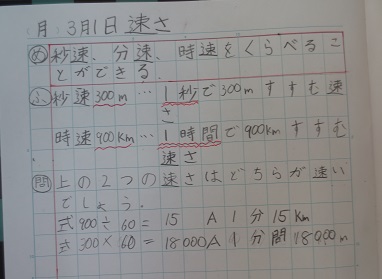 月 3月1日 速さ
め 秒速、分速、時速をくらべるこ
とができる.
ふ 秒速300m…1秒で300mすすむ速
さ
時速900Km…1時間で900Kmすすむ
速さ
問 上の2つの速さはどちらが速い
でしょう.
式900÷60=15 A 1分15Km
式300×60=18000 A 1分間18000m